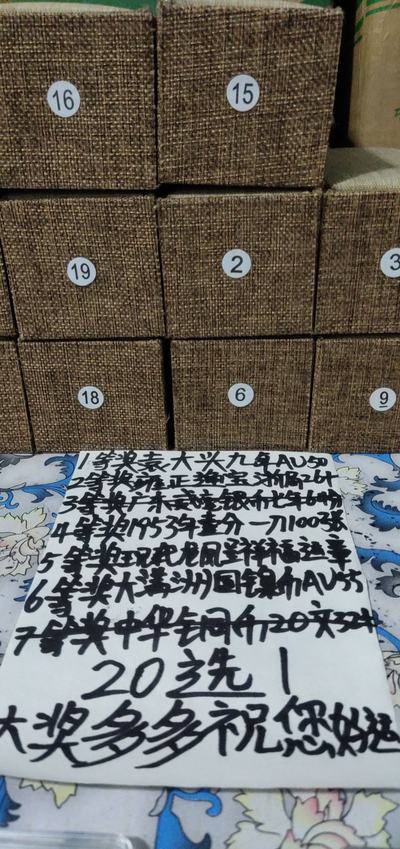 16 15
19 2 3
18 6 9
1等奖袁大头九年AU50
2等奖雍正通宝
3等奖广东贰毫银币七年
4等奖1953年壹分一刀100张
5等奖现代龙凤呈祥福运章
6等奖大满洲国镍币AU55
7等奖中华铜币20文32
20选1
大奖多多祝您好运